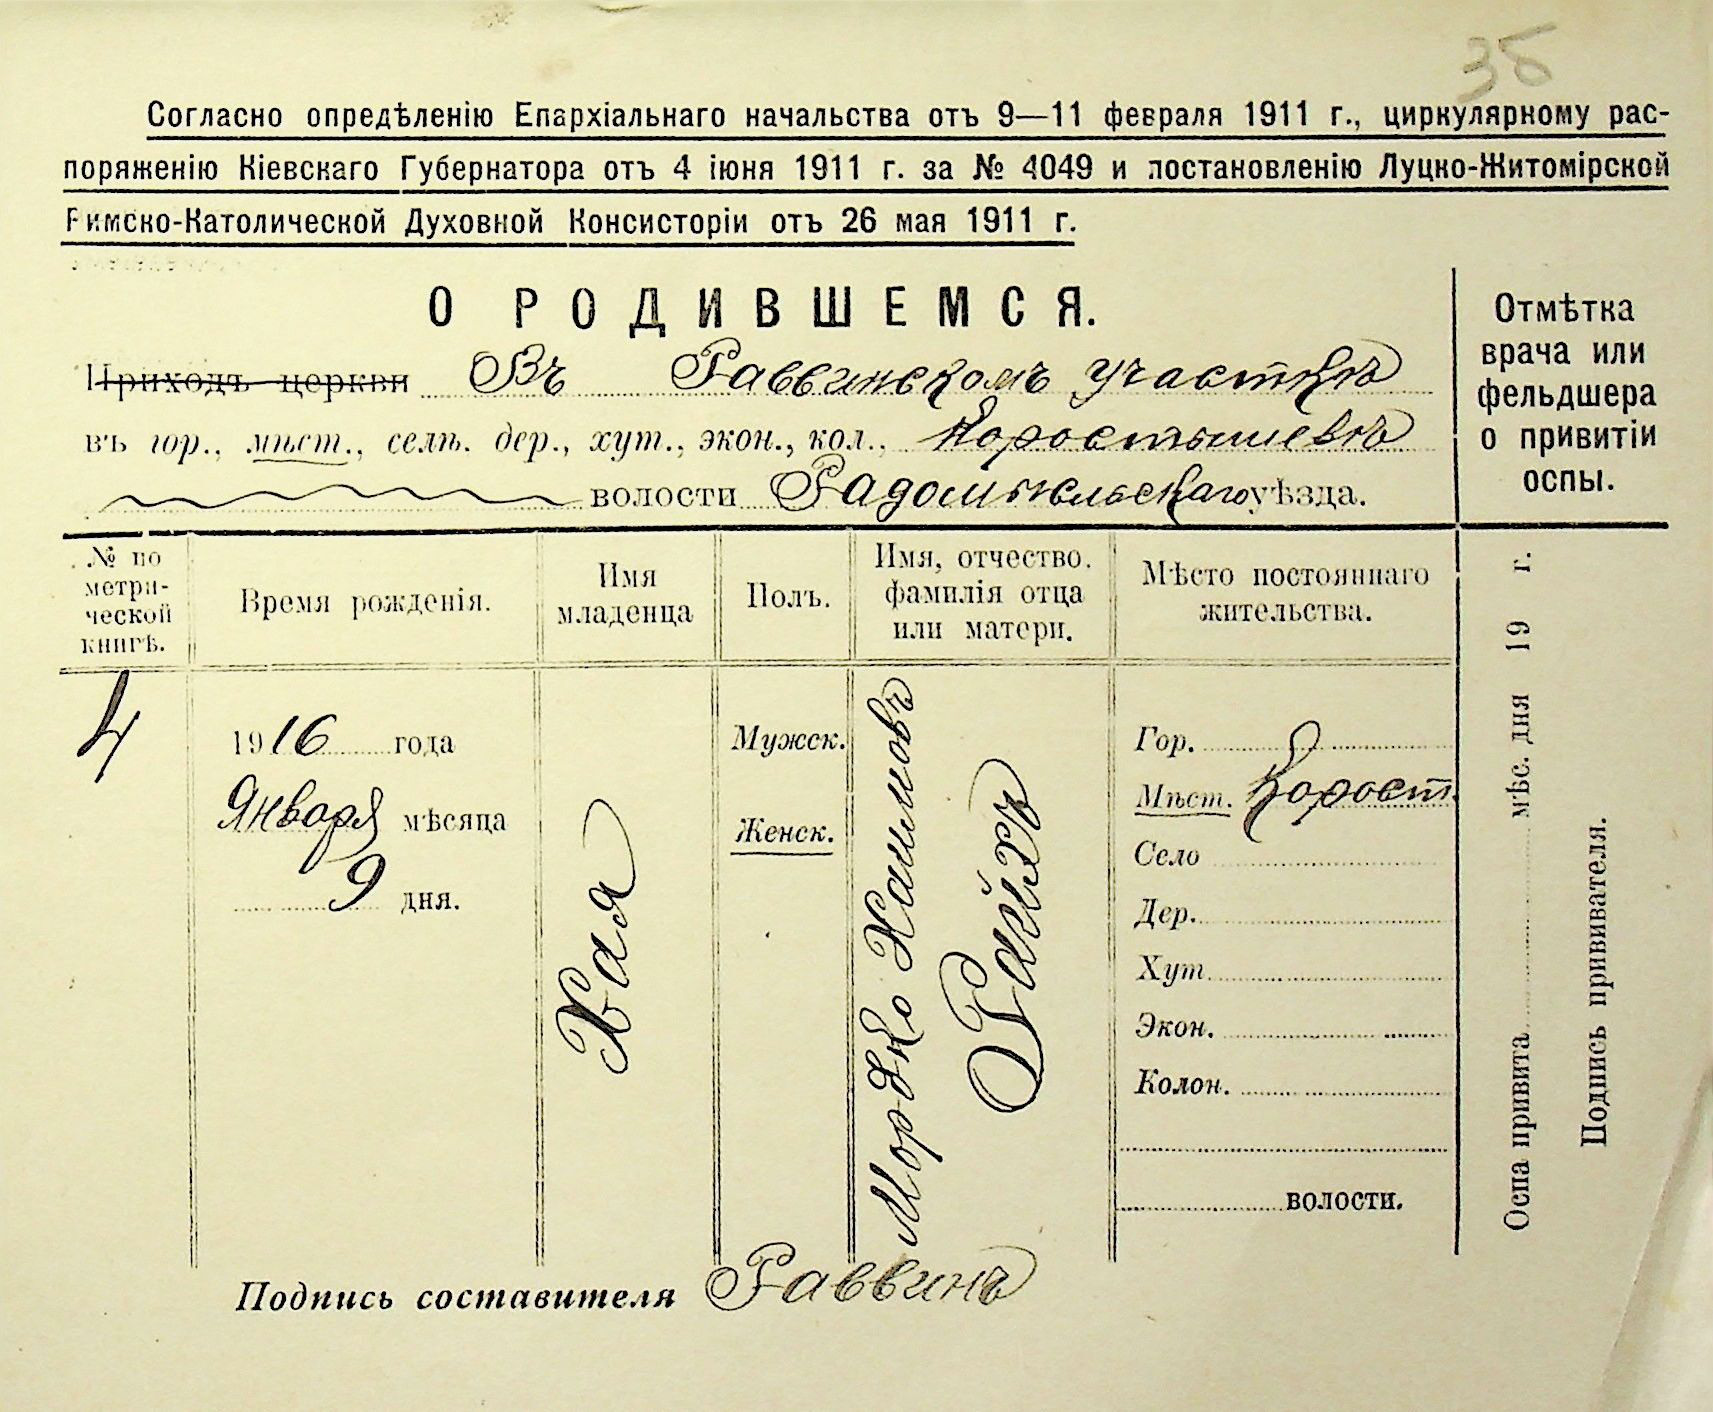 36
Согласно опредѣленію Епархіальнаго начальства отъ 9—11 февраля 1911 г., циркулярному рас-
поряженію Кіевскаго Губернатора отъ 4 іюня 1911 г. за № 4049 и постановленію Луцко-Житомірской
Римско-Католической Духовной Консисторіи отъ 26 мая 1911 г.
О РОДИВШЕМСЯ.
Приходъ церкви Въ Раввинскомъ участкѣ
въ гор., мѣст., селѣ. дер., хут., экон., кол., Коростышевѣ
волости Радомысльскаго уѣзда.
Отмѣтка
врача или
фельдшера
о привитіи
оспы.
№ по
метри-
ческой
книгѣ.
Время рожденія.
Имя
младенца
Полъ.
Имя, отчество.
фамилія отца
или матери.
Мѣсто постояннаго
жительства.
4
1916 года
Января мѣсяца
9 дня.
Хая
Мужск.
Женск.
Мордко Хаимовъ
Райхъ
Гор.
Мѣст. Корост.
Село
Дер.
Хут.
Экон.
Колон.
волости.
Оспа привита мѣс. дня 19 г.
Подпись прививателя.
Подпись составителя Раввинъ